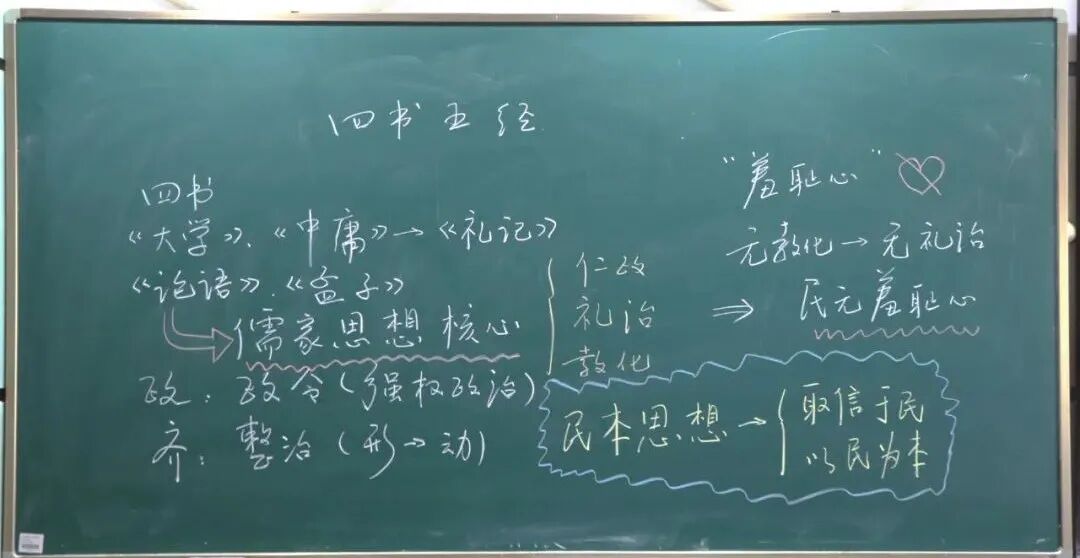 四书五经
四书
《大学》、《中庸》→《礼记》
《论语》、《孟子》
儒家思想核心
政：政令（强权政治）
齐：整治（形→动）
仁政
礼治
教化
"羞耻心"
无教化→无礼治
⇒ 民无羞耻心
民本思想→
取信于民
以民为本